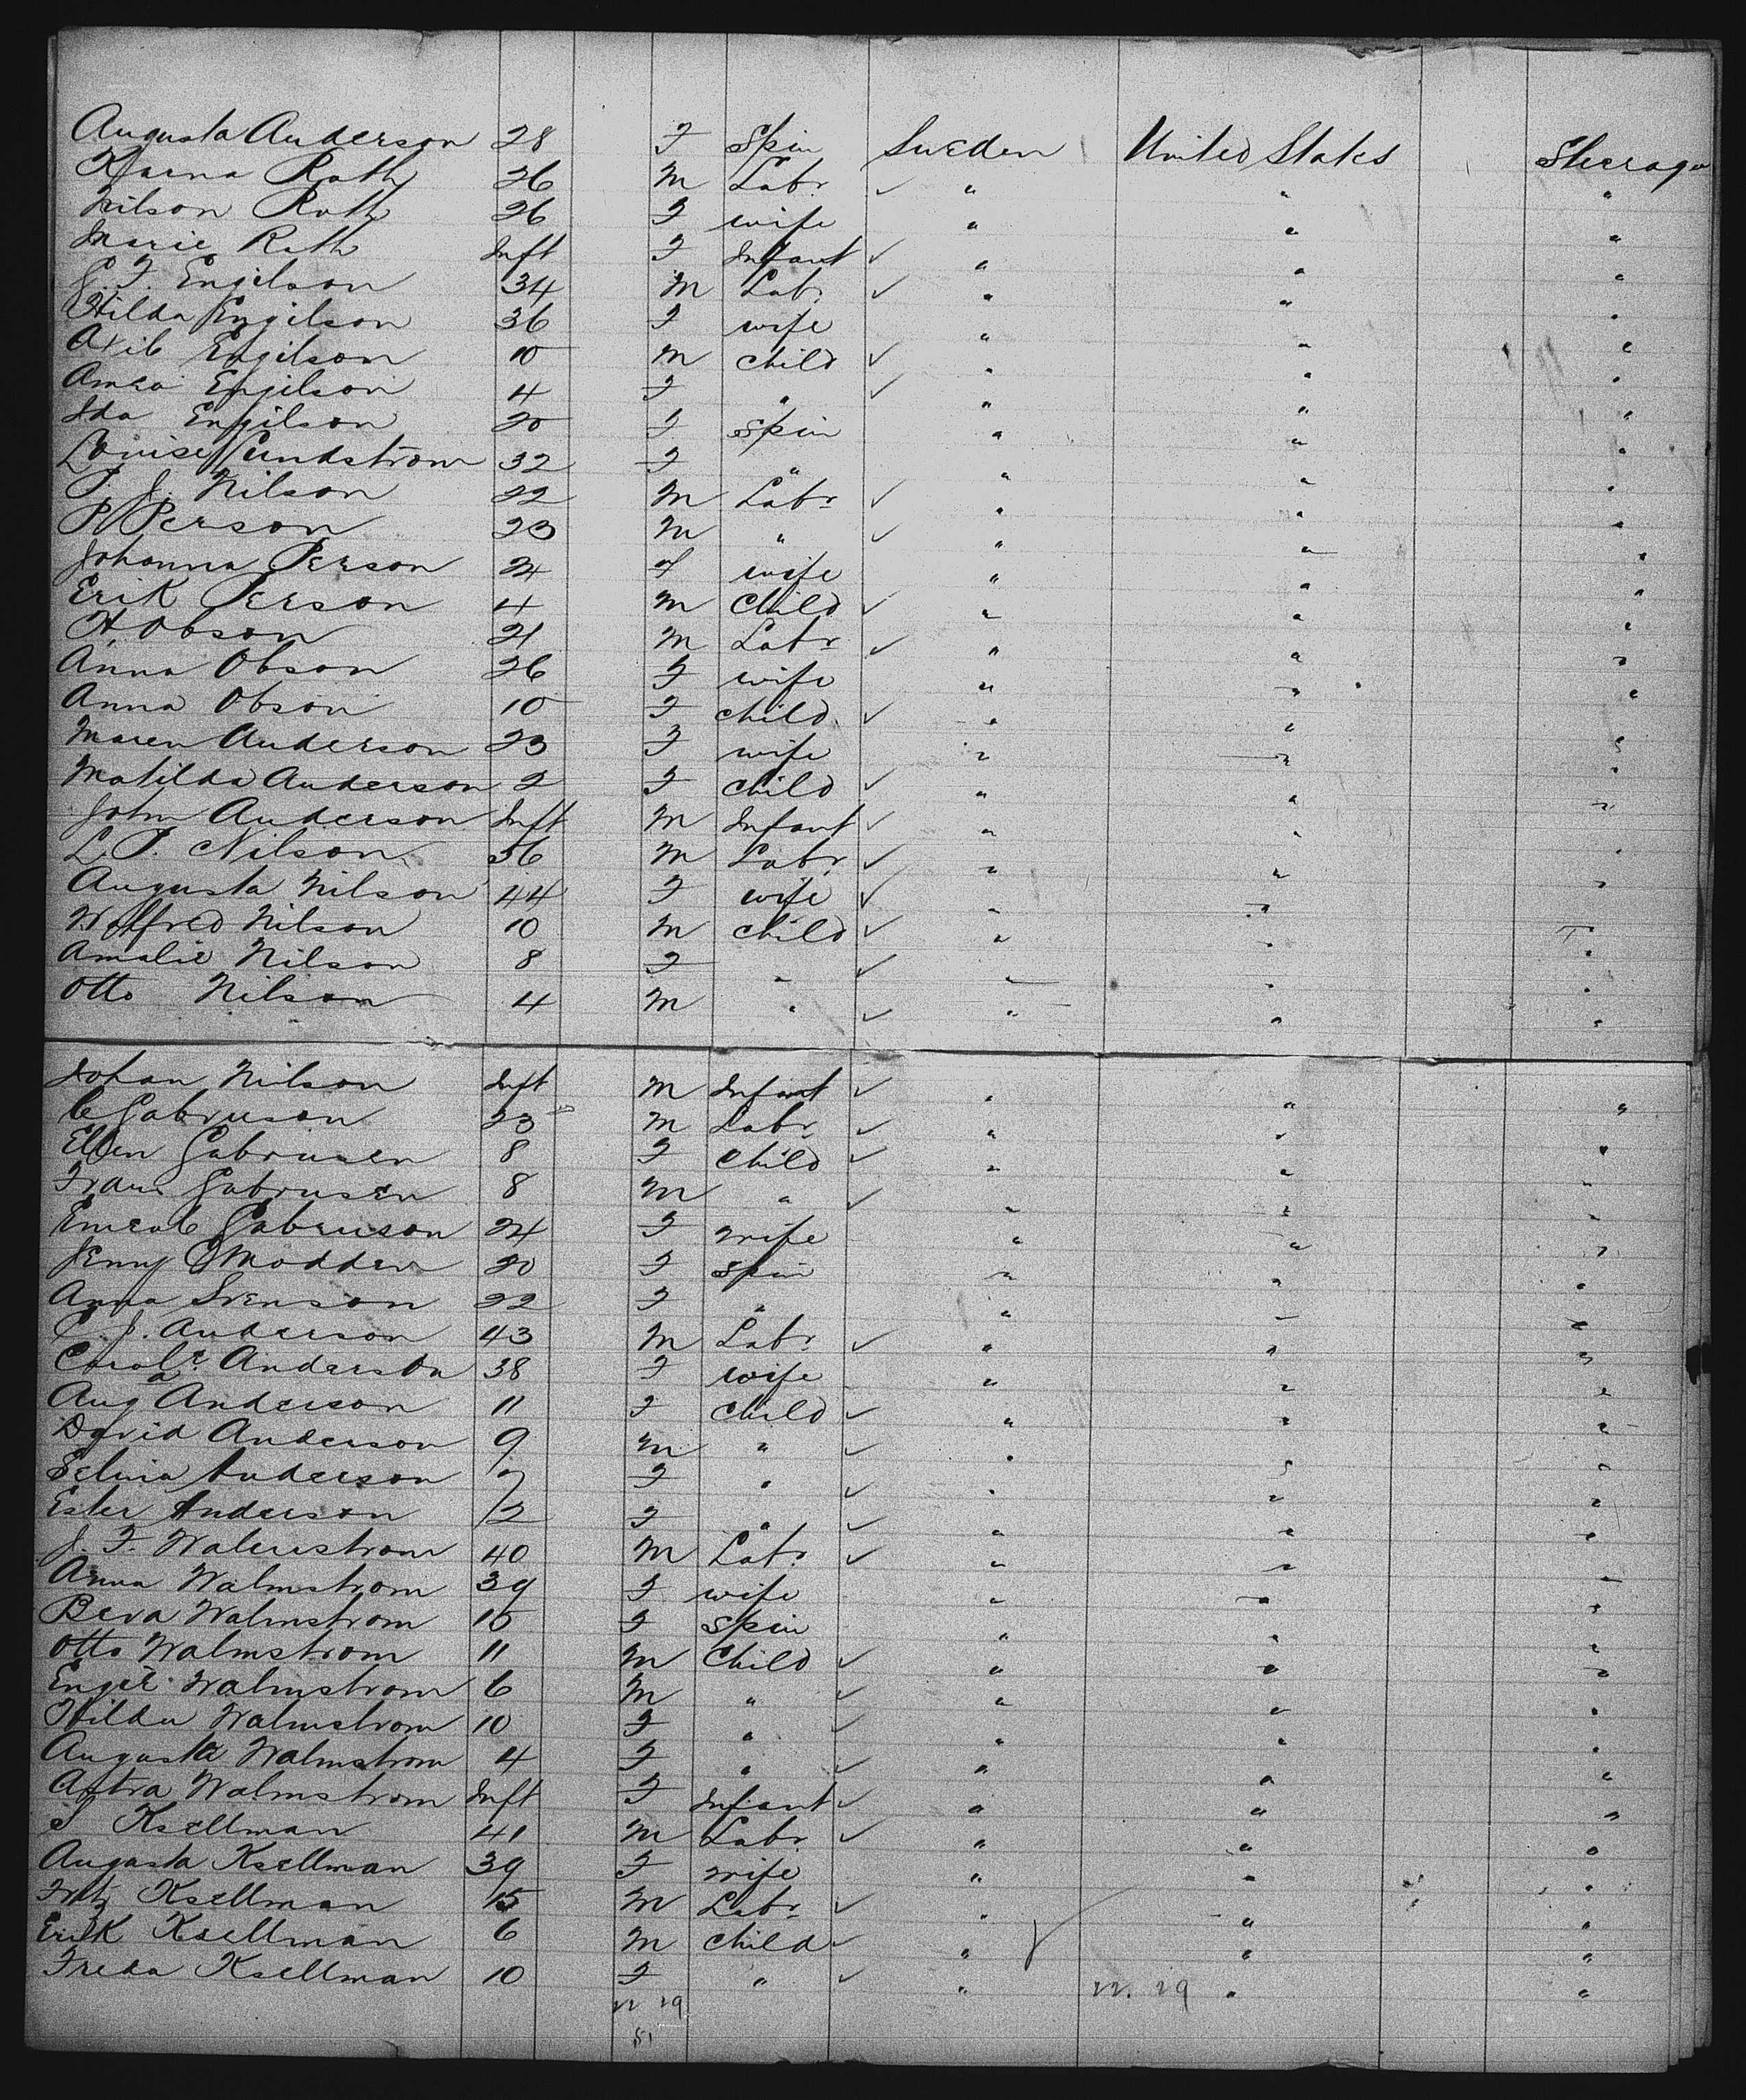 Augusta Anderson 28 F Spin Sweden United States Steerage
Karna Roth 26 M Labr ✓ " " "
Nilson Roth 26 F wife " " "
Marie Roth Inft F Infant ✓ " " "
J. F. Engilson 34 M Labr ✓ " " "
Hilda Engilson 36 F wife " " "
Axil Engilson 10 M Child ✓ " " "
Engilson 4 F " ✓ " " "
Ida Engilson 20 F Spin " " "
Louise Lundstrom 32 F " " " "
P. J. Nilson 22 M Labr ✓ " " "
P Person 23 M " ✓ " " "
Johanna Person 24 F wife " " "
Erik Person 4 M Child ✓ " " "
H. Obson 21 M Labr ✓ " " "
Anna Obson 26 F wife " " "
Anna Obson 10 F child ✓ " " "
Maren Anderson 23 F wife " " "
Matilda Anderson 2 F Child ✓ " " "
John Anderson Inft M Infant ✓ " " "
L. P. Nilson 36 M Labr ✓ " " "
Augusta Nilson 44 F wife ✓ " " "
Wilfred Nilson 10 M child ✓ " " "
Amalie Nilson 8 F " ✓ " " "
Otto Nilson 4 M " ✓ " " "
Johan Nilson Inft M Infant ✓ " " "
C Gabruson 23 M Labr ✓ " " "
Ellen Gabrusen 8 F Child ✓ " " "
Frans Gabrusen 8 M " ✓ " " "
Gabruson 24 F wife " " "
Jenny Modden 20 F Spin " " "
Anna Svenson 22 F " " " "
C. J. Anderson 43 M Labr ✓ " " "
Carole Anderson 38 F wife " " "
Auga Anderson 11 F Child ✓ " " "
David Anderson 9 M " ✓ " " "
Selma Anderson 7 F " ✓ " " "
Ester Anderson 2 F " ✓ " " "
J. F. Walmstrom 40 M Labr ✓ " " "
Anna Walmstrom 39 F wife " " "
Beva Walmstrom 15 F Spin " " "
Otto Walmstrom 11 M Child ✓ " " "
Walmstrom 6 M " ✓ " " "
Hilda Walmstrom 10 F " ✓ " " "
Augusta Walmstrom 4 F " ✓ " " "
Astra Walmstrom Inft F Infant ✓ " " "
S Ksellman 41 M Labr ✓ " " "
Augusta Ksellman 39 F wife " " "
Fritz Ksellman 15 M Labr ✓ " " "
Erik Ksellman 6 M Child ✓ " " "
Freda Ksellman 10 F " ✓ " " "
22 29 22. 29
51